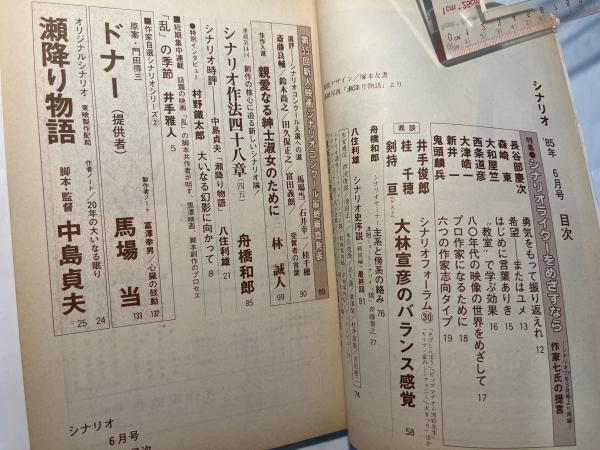 シナリオ
'85年 6月号 目次
表紙デザイン／塚本友書
「瀬降り物語」より
特集●シナリオライターをめざすなら
作家七氏の提言
長谷部慶次
勇気をもって振り返えれ 12
森崎 東
希望——またはユメ 13
大和屋竺
はじめに言葉ありき 15
西条道彦
“教室”で学ぶ効果 16
大津皓一
八〇年代の映像の世界をめざして 17
新井 一
プロ作家になるために 18
鬼頭麟兵
六つの作家志向タイプ 19
鼎談
井手俊郎
桂 千穂
剣持 亘
シナリオフォーラム㉚
大林宣彦のバランス感覚 58
舟橋和郎
主系と傍系の絡み 76
77
八住利雄
シナリオ史序説 最終回 81
74
第35回新人映画シナリオコンクール最終審査発表 89
選評
シナリオコンクール入選への道
馬場当／石井幸一／桂千穂
斎藤良輔／鈴木尚之／田久保正之／富田義朗／受賞者の言葉 90
佳作入選
親愛なる紳士淑女のために 林 誠人 99
連載第14回
創作の核心に迫る新しいシナリオ論！
シナリオ作法四十八章（四五） 舟橋和郎 85
シナリオ時評——中島貞夫「瀬降り物語」 八住利雄 21
●特別インタビュー
村野鐵太郎——大いなる幻影に向かって 8
■短期集中連載
話題の映画「乱」の脚本共作者が明す、黒澤映画、脚本創作のプロセス
「乱」の季節 井手雅人 5
■作家自選シナリオシリーズ②
原案・門田得三
ドナー（提供者） 馬場 当 133
製作者ノート 富澤幸男・心臓の鼓動 132
オリジナルシナリオ 東映製作配給
作者ノート／20年の大いなる眠り 24
瀬降り物語 脚本・監督 中島貞夫 25
シナリオ
6月号